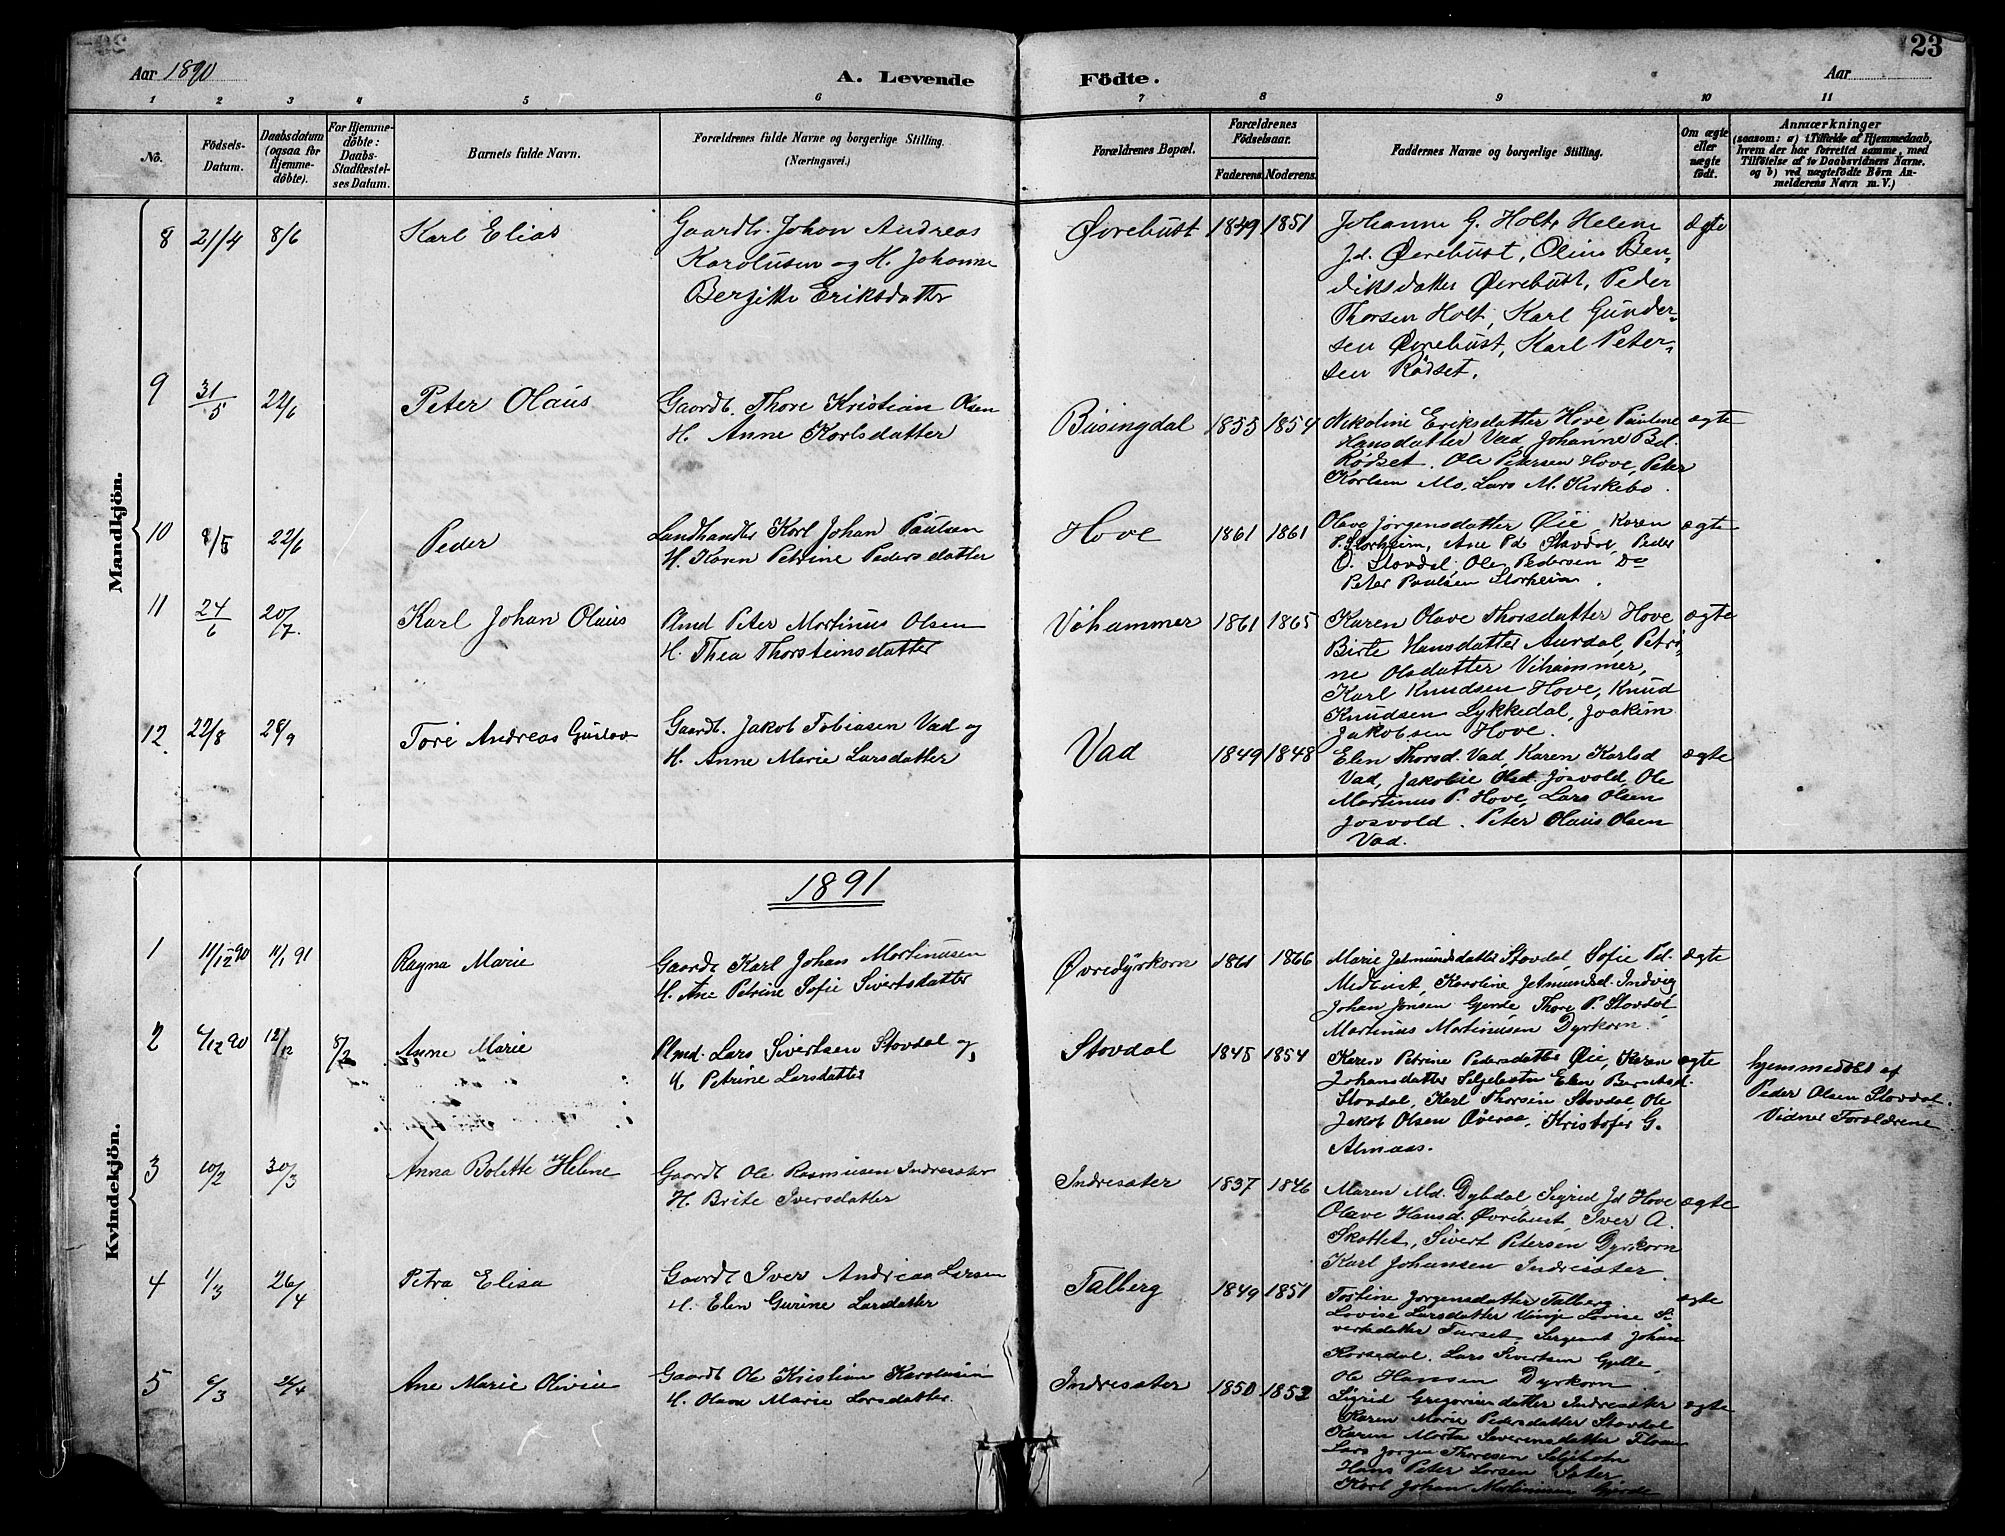 23
Aar 1890
A. Levende Födte.
Aar
1 2 3 4 5 6 7 8 9 10 11
No.
Födsels-
Datum.
Daabsdatum
(ogsaa for
Hjemme-
døbte).
For Hjemme-
døbte:
Daabs-
Stadfæstel-
ses Datum.
Barnets fulde Navn.
Forældrenes fulde Navne og borgerlige Stilling.
(Næringsvei.)
Forældrenes Bopæl.
Forældrenes
Födselsaar.
Faderens. Moderens.
Faddernes Navne og borgerlige Stilling.
Om ægte
eller
uægte
födt.
Anmærkninger
(saasom: a) i Tilfælde af Hjemmedaab,
hvem der har forrettet samme, med
Tilföielse af to Daabsvidners Navne.
og b) ved uægtefödte Börn An-
melderens Navn m. V.)
Mandkjön.
8 21/4 8/6 Karl Elias
Gaardb. Johan Andreas
Karolusen og H. Johanne
Bergitte Eriksdatter
Øvrebust 1849 1851
Johanne G. Holt, Helene
J.d. Øvrebust, Oline Ben-
diksdatter Øvrebust, Peder
Thorsen Holt, Karl Gunder-
sen Øvrebust, Karl Peter-
sen Rødset.
Ægte
9 31/5 22/6 Peter Olaus
Gaardb. Thore Kristian Olsen
H. Anne Karlsdatter
Busingdal 1855 1854
Nikoline Eriksdatter Hove Pauline
Hansdatter Vad Johanne Bd.
Rødset. Ole Petersen Hove, Peter
Karlsen Mo, Lars M. Kirkebø.
ægte
10 9/5 22/6 Peder
Landhandler Karl Johan Paulsen
H. Karen Petrine Pedersdatter
Hove 1861 1861
Olave Jørgensdatter Øie, Karen
P. Storheim, Ane Pd Stavdal, Peder
O. Stovdal, Ole Pedersen Do
Peter Paulsen Storheim.
ægte
11 24/6 20/7. Karl Johan Olaus
Plmd Peter Martinus Olsen
H. Thea Thorsteinsdatter
Vihammer 1861 1865
Karen Olave Thorsdatter Hove
Birte Hansdatter Aurdal, Petri-
ne Olsdatter Vihammer,
Karl Knudsen Hove, Knud
Knudsen Lykkedal, Joakim
Jakobsen Hove.
ægte
12. 22/8 28/9 Tore Andreas Gustav
Gaardb. Jakob Tobiasen Vad og
H. Anne Marie Larsdatter
Vad 1849 1848
Elen Thorsd. Vad, Karen Karlsd
Vad, Jakobie Olsd. Josvold, Ole
Martinus P. Hove, Lars Olsen
Josvold. Peter Olaus Olsen
Vad.
ægte
1891
Kvindekjön.
1 11/12 90 11/1 91 Ragna Marie
Gaardb Karl Johan Martinusen
H. Ane Petrine Sofie Sivertsdatter
Øvredyrkorn 1861 1866
Marie Jetmundsdatter Stovdal, Sofie Pd.
Medbust, Karoline Jetmundsd. Indvig
Johan Jonsen Gjerde, Thore P. Stovdal
Martinus Martinusen Dyrkorn.
Ægte
2 4/12 90 12/12 8/2 Anne Marie
Plmd. Lars Sivertsen Stovdal og
H. Petrine Larsdatter
Stovdal 1845 1854
Karen Petrine Pedersdatter Øie, Karen
Johansdatter Seljebotn Elen Berntsd.
Stovdal, Karl Thorsen Stovdal, Ole
Jakob Olsen Øveraa, Kristofer G.
Almaas.
ægte
hjemmedøbt af
Peder Olsen Stovdal.
Vidner Forældrene
3 10/2 30/3 Anna Bolette Helene
Gaardb Ole Rasmusen Indresæter
H Brite Iversdatter
Indresæter 1837 1846
Maren Md. Dybdal, Sigrid Jd Hove
Olave Hansd. Øvrebust, Iver A.
Skottet, Sivert Petersen Dyrkorn
Karl Johansen Indresæter.
ægte
4 1/3 26/4 Petra Elisa
Gaardb Iver Andreas Larsen
H. Elen Gurine Larsdatter
Talberg 1849 1851
Tostine Jørgensdatter Talberg
Lovise Larsdatter Lovise Si-
vertsdatter Furset, Sergeant Johan
Korsedal. Lars Sivertsen Gjelle,
Ole Hansen Dyrkorn
ægte
5 6/3 26/4 Ane Marie Olivie
Gaardb Ole Kristian Karolusen
H. Olave Marie Larsdatter
Indresæter 1850 1852
Sigrid Gregoriusdatter Indresæter
Karen Marie Pedersdatter Stovdal
Karen Marta Severinsdatter
Lars Jørgen Thoresen Seljebotn
Hans Peter Larsen Sæter
Karl Johan Martinusen Gjerde
ægte